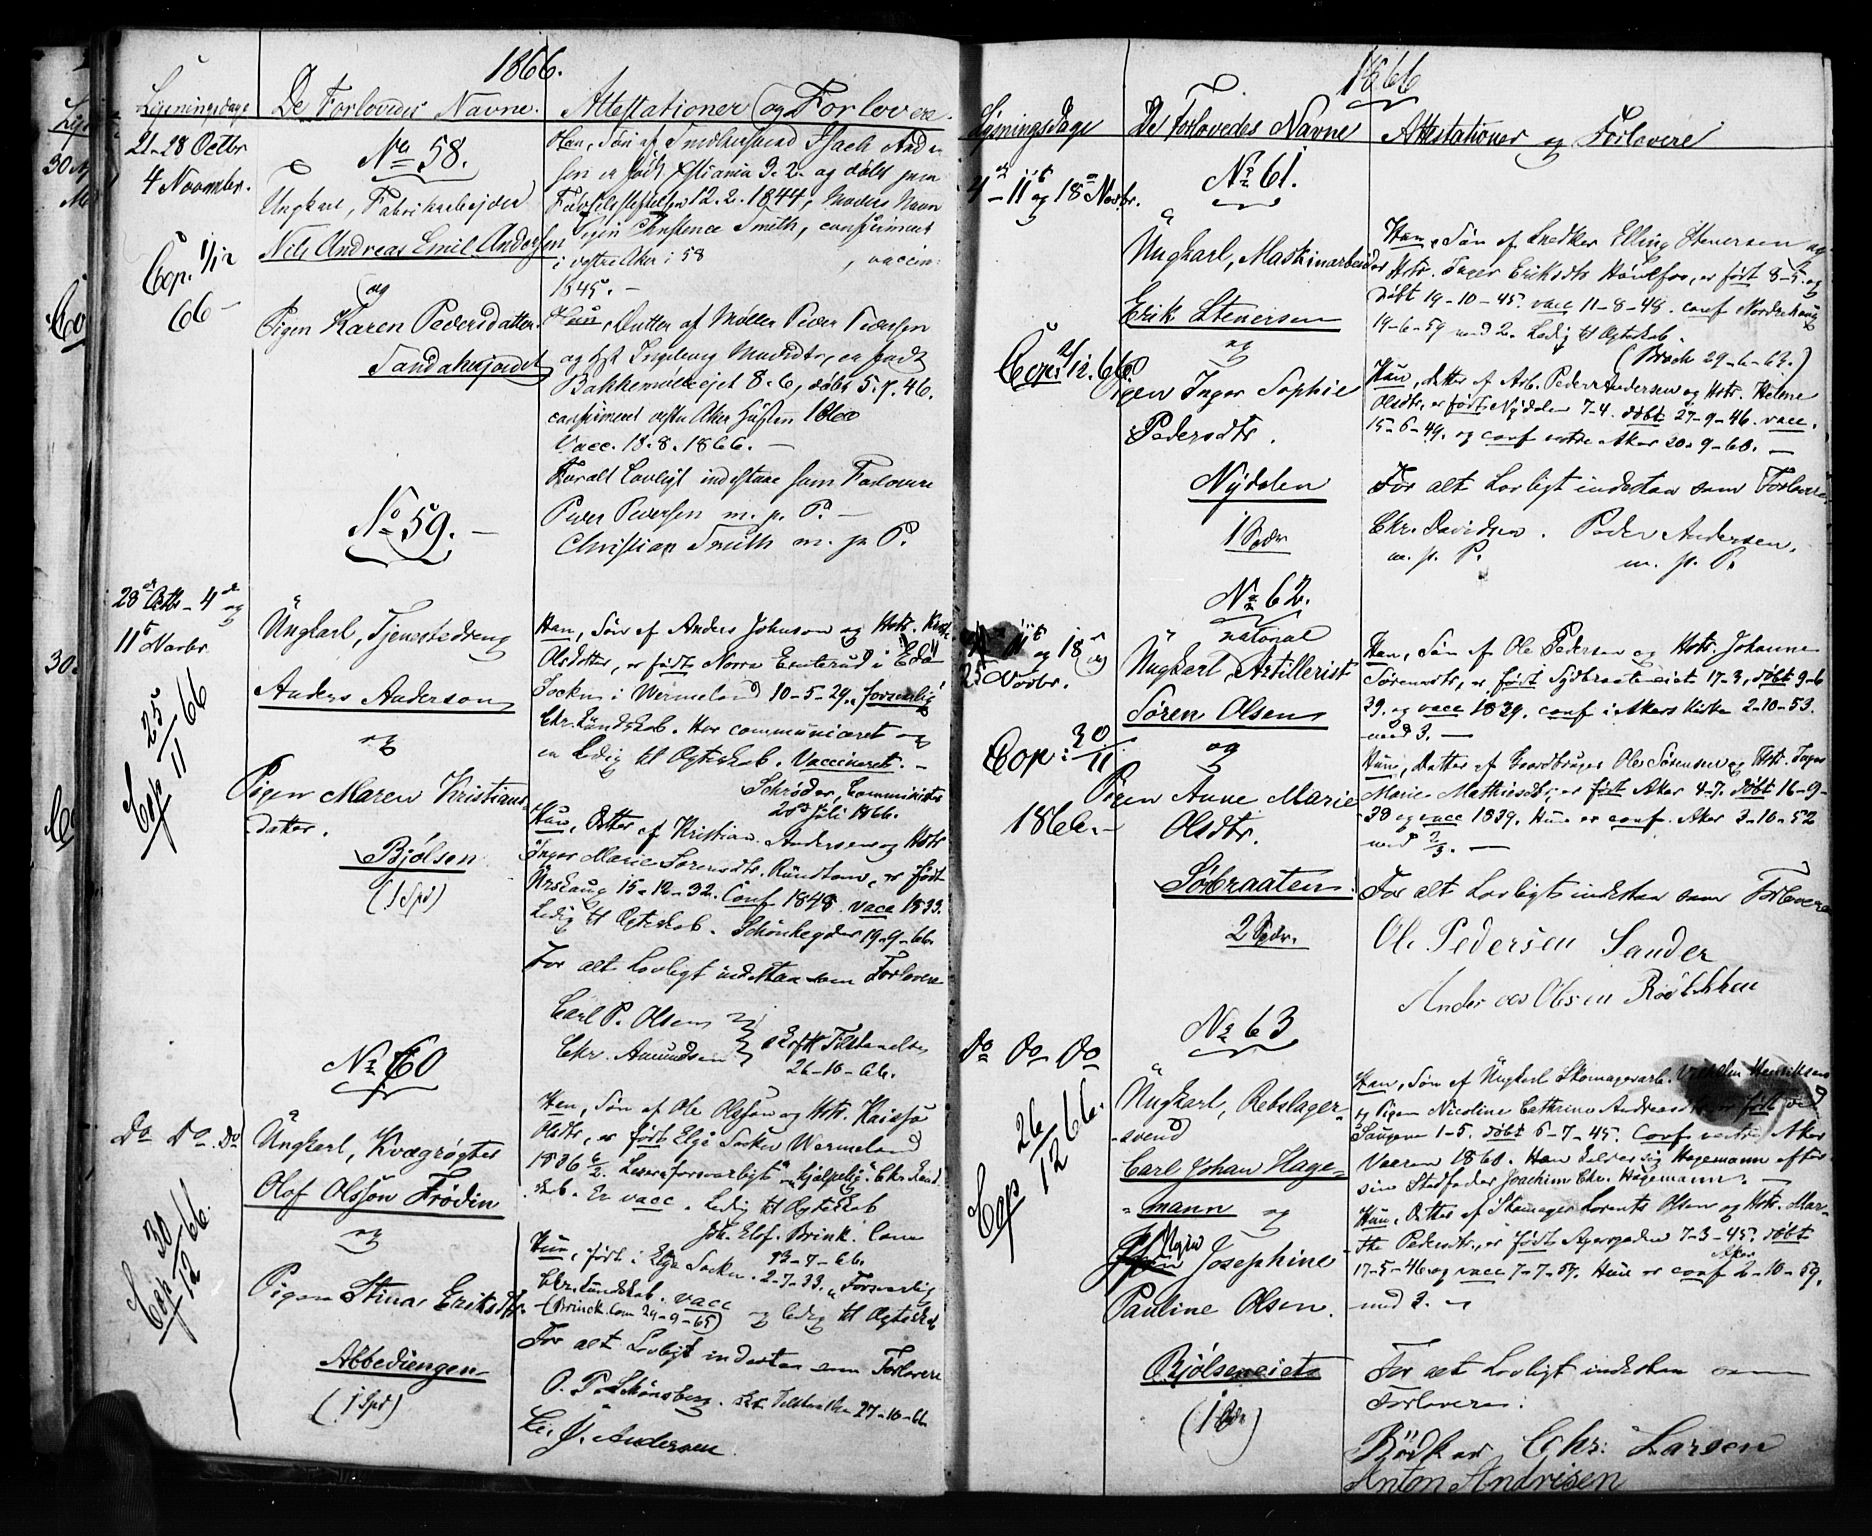 1866.
Lysningsdage
De Forlovedes Navne.
Attestationer og Forlovere
21-28 Octbr
4 Novembr.
Cop. 1/12
66 -
No 58.
Ungkarl, Fabrikarbejder
Nils Andreas Emil Andersen
og
Pigen Karen Pedersdatter
Sandakerjordet
Han, Søn af Smedkersvend Isach Ander
sen er født Xstiania 9.2. og døbt paa
Fødselsstiftelsen 12.2.1844, Moders Navn
Pigen Christence Smith, confirmeret
i vestre Aker i 58, vaccin:
1845. -
Hun, Datter af Møller Peder Pedersen
og Hst Ingeborg Madsdtr, er født
Bakkemølleejet 8.6, døbt 5.7.46.
confirmeret vestre Aker Høsten 1860
Vacc. 13.8.1866. -
For alt Lovligt indestaae som Forlovere
Peder Pedersen m. p. P. -
Christian Smith m. p. P.
No 59. -
28de Octbr - 4de og
11te Novbr.
Cop 25/11 66
Ungkarl, Tjenestedreng
Anders Anderson
og
Pigen Maren Kristians-
datter.
Bjølsen
(1 Spd)
Han, Søn af Anders Johnson og Hstr.
Olsdotter, er født Norra i Eda
Socken i Wermeland 10-5-29, forsvarlig
Chr. Kundskab. Har communiceret og
er Ledig til Ægteskab. Vaccineret. -
Schrøder, Comminister
20de Juli 1866.
Hun, Datter af Kristian Andersen og Hstr
Inger Marie Sørensdtr. Rundtom, er født
Urskoug 15-12-32. Conf 1848. vacc 1833.
Ledig til Ægteskab. Schønheyder 19-9-66.
For alt Lovligt indestaa som Forlovere
Carl P. Olsen
Chr. Amundsen
26-10-66.
No 60
Do Do Do
Cop 30/12 66.
Ungkarl, Kvægrøgter
Olof Olsson Frødin
og
Pigen Stina Eriksdtr.
Abbediengen
(1 Spd)
Han, Søn af Ole Olsson og Hstr. Kaissa
Olsdtr, er født Elga Socken Wermeland
1836 6/2. Læser forsvarligt "hjelpelig" Chr. Kund-
skab. Er vacc. Ledig til Ægteskab
Joh. Elof. Brink. Com
13-7-66.
Hun, født i Elga Socken. 2-7-33. "Forsvarlig
Chr. Kundskab. vacc og ledig til Ægteskab
(Brinck. Com 24-9-65)
For alt Lovligt indestaa som Forlovere
O. P. Schønsberg. 27-10-66
J. Andersen.
1866
Lysningsdage
De Forlovedes Navne
Attestationer og Forlovere
4de - 11te og 18de Novbr.
Cop: 2/12.66.
No 61.
Ungkarl, Maskinarbeider
Erik Stenersen
og
Pigen Inger Sophie
Pedersdtr.
Nydalen
1 Spdr
Han, Søn af Snedker Elling Stenersen og
Hstr. Inger Eriksdtr Hønefos, er født 8-5. og
døbt 19-10-45. vacc 11-8-48. conf Nordrehoug
19-6-59 med 2. Ledig til Ægteskab.
(Broch 29-6-63.)
Hun, datter af Arb. Peder Andersen og Hstr. Helene
Olsdtr, er født Nydalen 7-4. døbt 27-9-46. vacc.
15-6-49. og conf vestre Aker 20-9-60. -
For alt Lovligt indestaa som Forlovere
Chr. Davidsen. Peder Andersen.
m. p. P. m. p. P.
No 62.
11te og 18de og
25 Novbr.
Cop: 30/11
1866. -
national
Ungkarl, Artillerist
Søren Olsen
og
Pigen Anne Marie
Olsdtr.
Søbraaten.
2 Spdr.
Han, Søn af Ole Pedersen og Hstr. Johanne
Sørensdtr, er født Sydbraateneiet 17-3, døbt 9-6
39. og vacc 1839. conf i Akers Kirke 2-10-53.
med 3. -
Hun, Datter af Gaardbruger Ole Sørensen og Hstr. Inger
Marie Mathiesdtr, er født Aker 4-7. døbt 16-9-
38 og vacc 1839. Hun er conf. Aker 3-10-52
med 2/3. -
For alt Lovligt indestaa som Forlovere
Ole Pedersen Sander
Anders Olsen
No 63
Do Do Do
Cop 26/12 66.
Ungkarl, Rebslager-
-svend
Carl Johan Hage-
-mann og
Pigen Josephine
Pauline Olsen.
Bjølseneiet
(1 Spdr)
Han, Søn af Ungkarl Skomagerarb. Vilhelm Henriksen
og Pigen Nicoline Cathrine Andreasdtr er født ved
Saugene 1-5. døbt 6-7-45. Conf vestre Aker
Vaaren 1860. Han kalder sig Hagemann efter
sin Stedfader Joachim Chr. Hagemann. -
Hun, Datter af Skomager Lorents Olsen og Hstr. Mar-
-the Pedersdtr., er født Agersgaden 7-3-45. døbt
17-5-46. og vacc 7-7-57. Hun er conf Aker 2-10-59.
med 3. -
For alt Lovligt indestaa som
Forlovere:
Bødker Chr: Larsen
Anton Andrisen